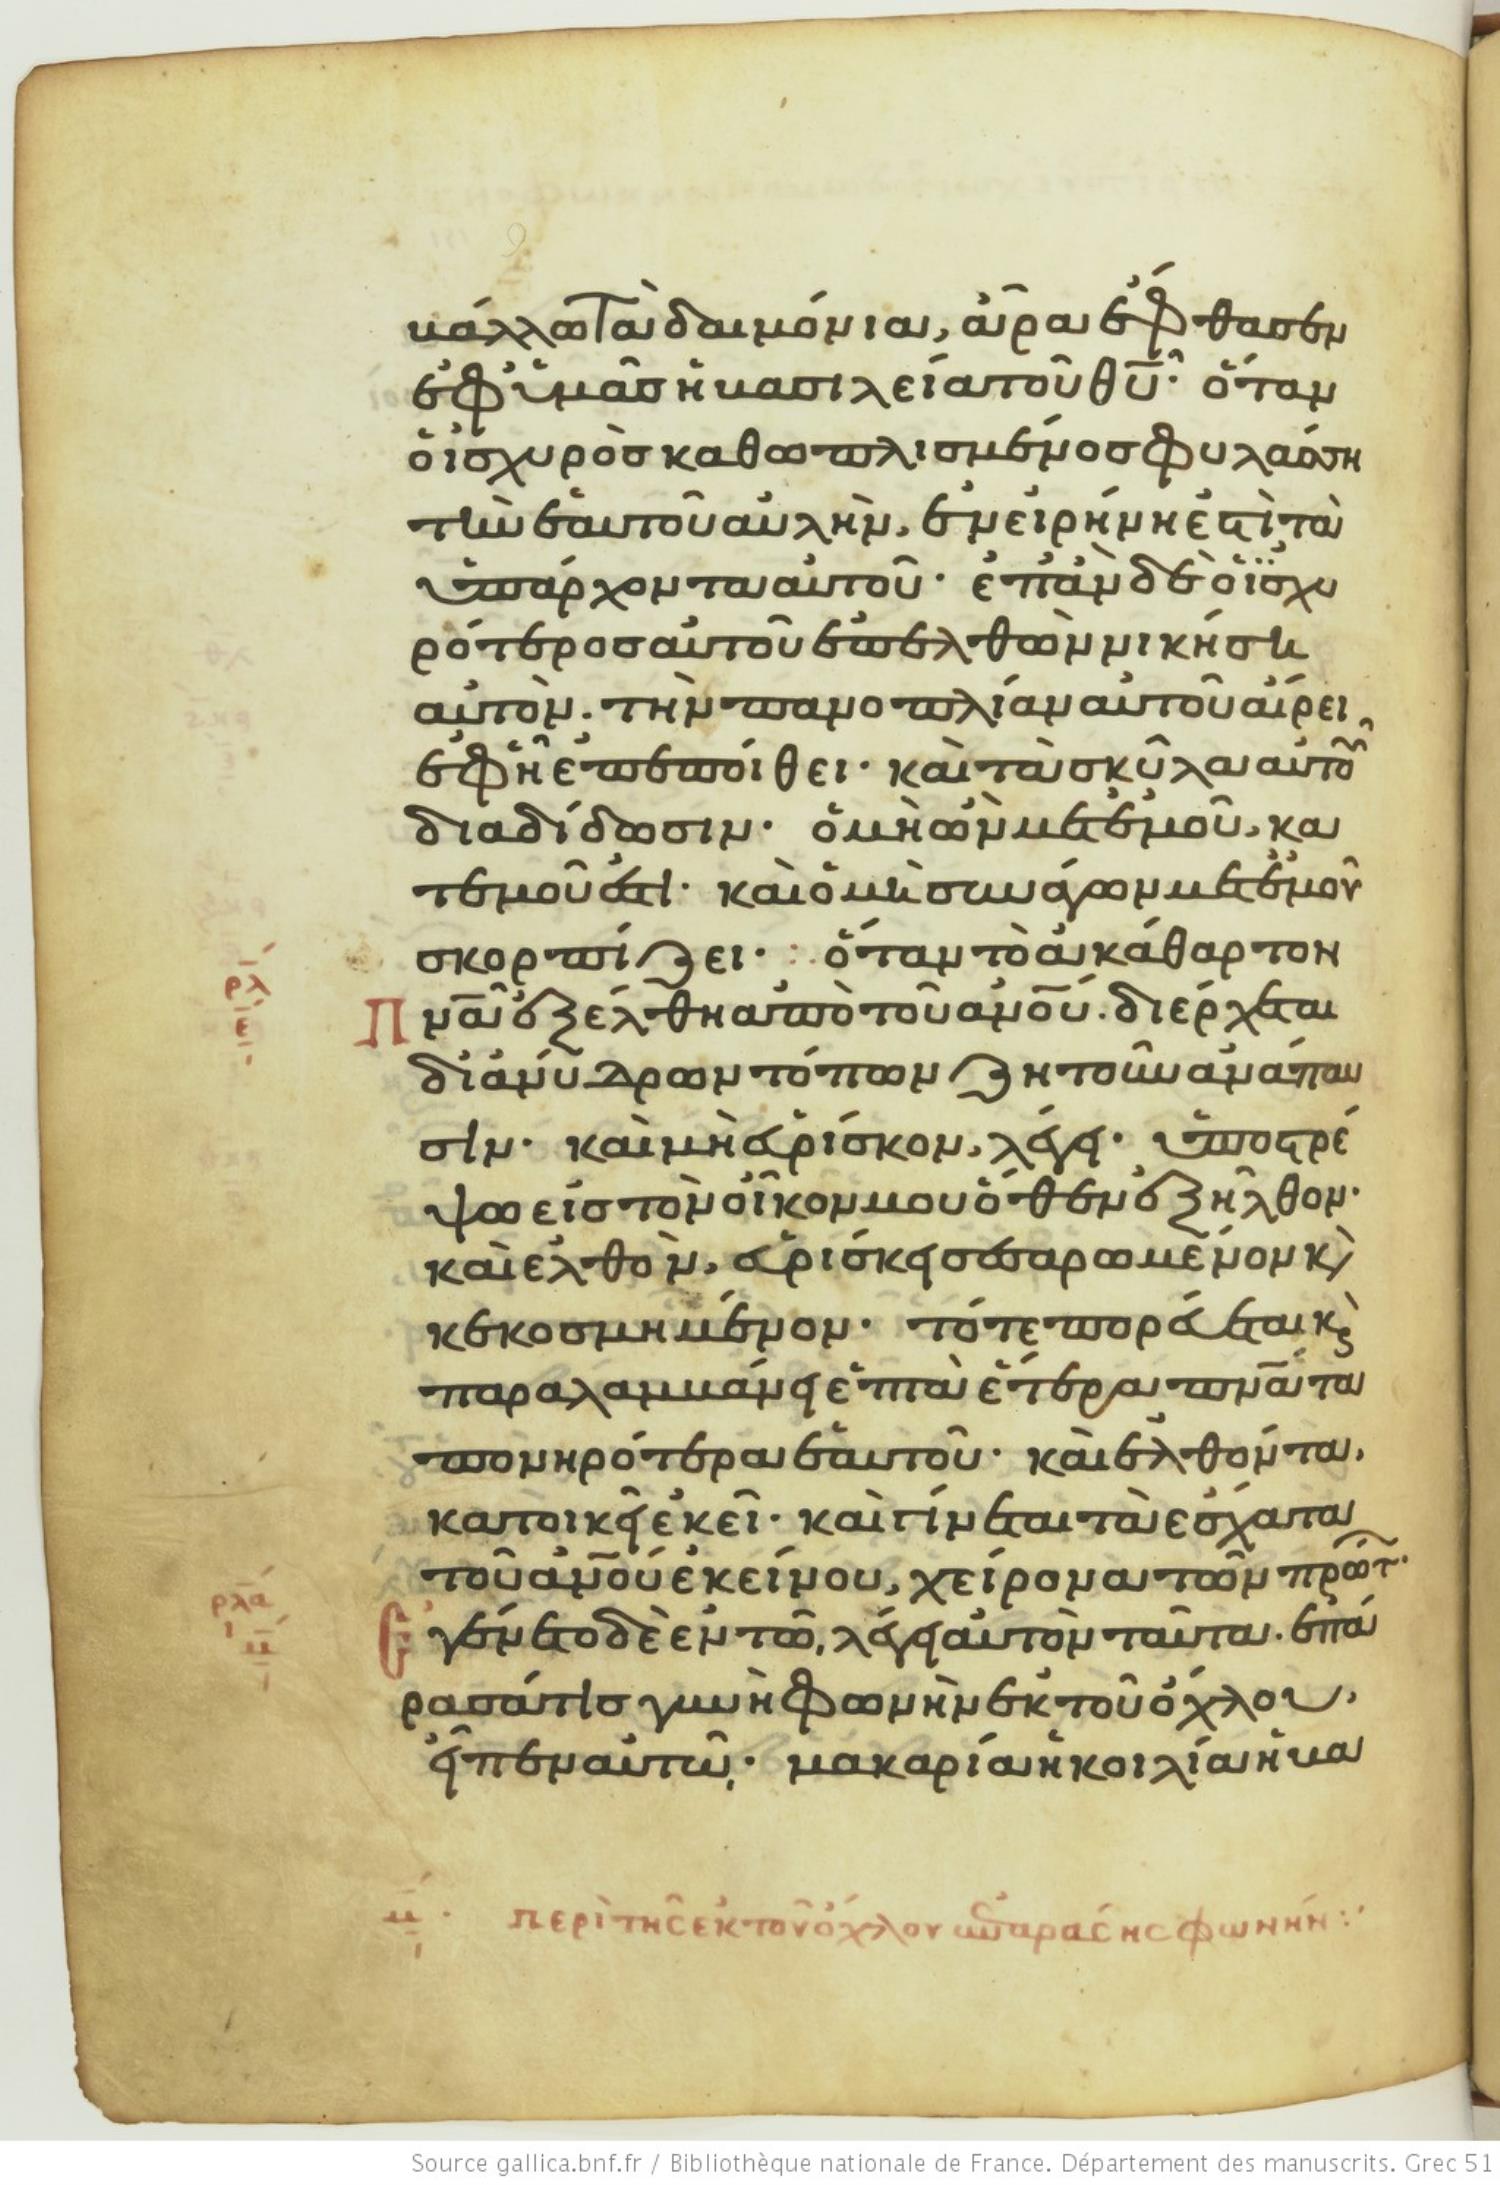 βάλλω τὰ δαιμόνια, ἄρα ἔφθασεν
ἐφ ὑμᾶς ἡ βασιλεία τοῦ θῦ· ὅταν
ὁ ἰσχυρὸς καθωπλισμένος φυλάσση
τὴν ἑαυτοῦ αὐλὴν, ἐν εἰρήνη ἐστὶ τὰ
ὑπάρχοντα αὐτοῦ· ἐπὰν δὲ ὁ ἰσχυ
ρότερος αὐτοῦ ἐπελθὼν νικήση
αὐτὸν. τὴν πανοπλίαν αὐτοῦ αἴρει
ἐφ ἧ ἐπεποίθει· καὶ τὰ σκῦλα αὐτοῦ
διαδίδωσιν· ὁ μὴ ὢν μετ ἐμοῦ, κα
τ ἐμοῦ ἐστι· καὶ ὁ μὴ συνάγων μετ ἐμοῦ
σκορπίζει· ὅταν τὸ ἀκάθαρτον
Πνᾶ ἐξέλθη ἀπὸ τοῦ ἀνοῦ. διέρχεται
δι ἀνύδρων τόπων ζητοῦν ἀνάπαυ
σιν· καὶ μὴ εὑρίσκον, λέγει· ὑποστρέ
ψω εἰς τὸν οἶκον μου ὅθεν ἐξῆλθον·
καὶ ἐλθὸν, εὑρίσκει σεσαρωμένον κὶ
κεκοσμημένον· τότε πορεύεται κὶ
παραλαμβάνει ἑπτὰ ἕτερα πνᾶτα
πονηρότερα ἑαυτοῦ· καὶ ἐλθόντα,
κατοικεῖ ἐκεῖ· καὶ γίνεται τὰ ἔσχατα
τοῦ ἀνοῦ ἐκείνου, χείρονα τῶν πρώτ·
Εγένετο δὲ ἐν τῶ, λέγει αὐτὸν ταῦτα. ἐπά
ρασά τις γυνὴ φωνὴν ἐκ τοῦ ὄχλου,
εἶπεν αὐτῶ· μακαρία ἡ κοιλία ἡ βα
ρλ
ε
ρλα
ι
μ
μ· περὶ τῆς ἐκ τοῦ ὄχλου ἐπαράσης φωνήν:
Source gallica.bnf.fr / Bibliothèque nationale de France. Département des manuscrits. Grec 51